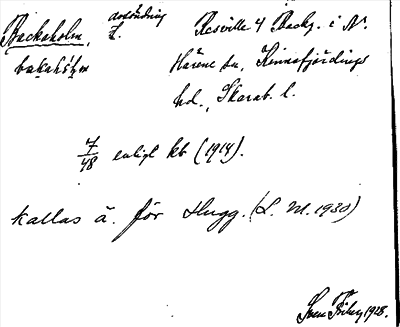 Backaholm, avsöndring Resville 4 Backg. i N.
bakahȯl̥m f. Härene sn, Kinnefjärdings
hd., Skarab. l.
7/48 enligt kb (1914).
kallas ä. för Hugg. (L. M. 1930)
Sven Friberg 1928.